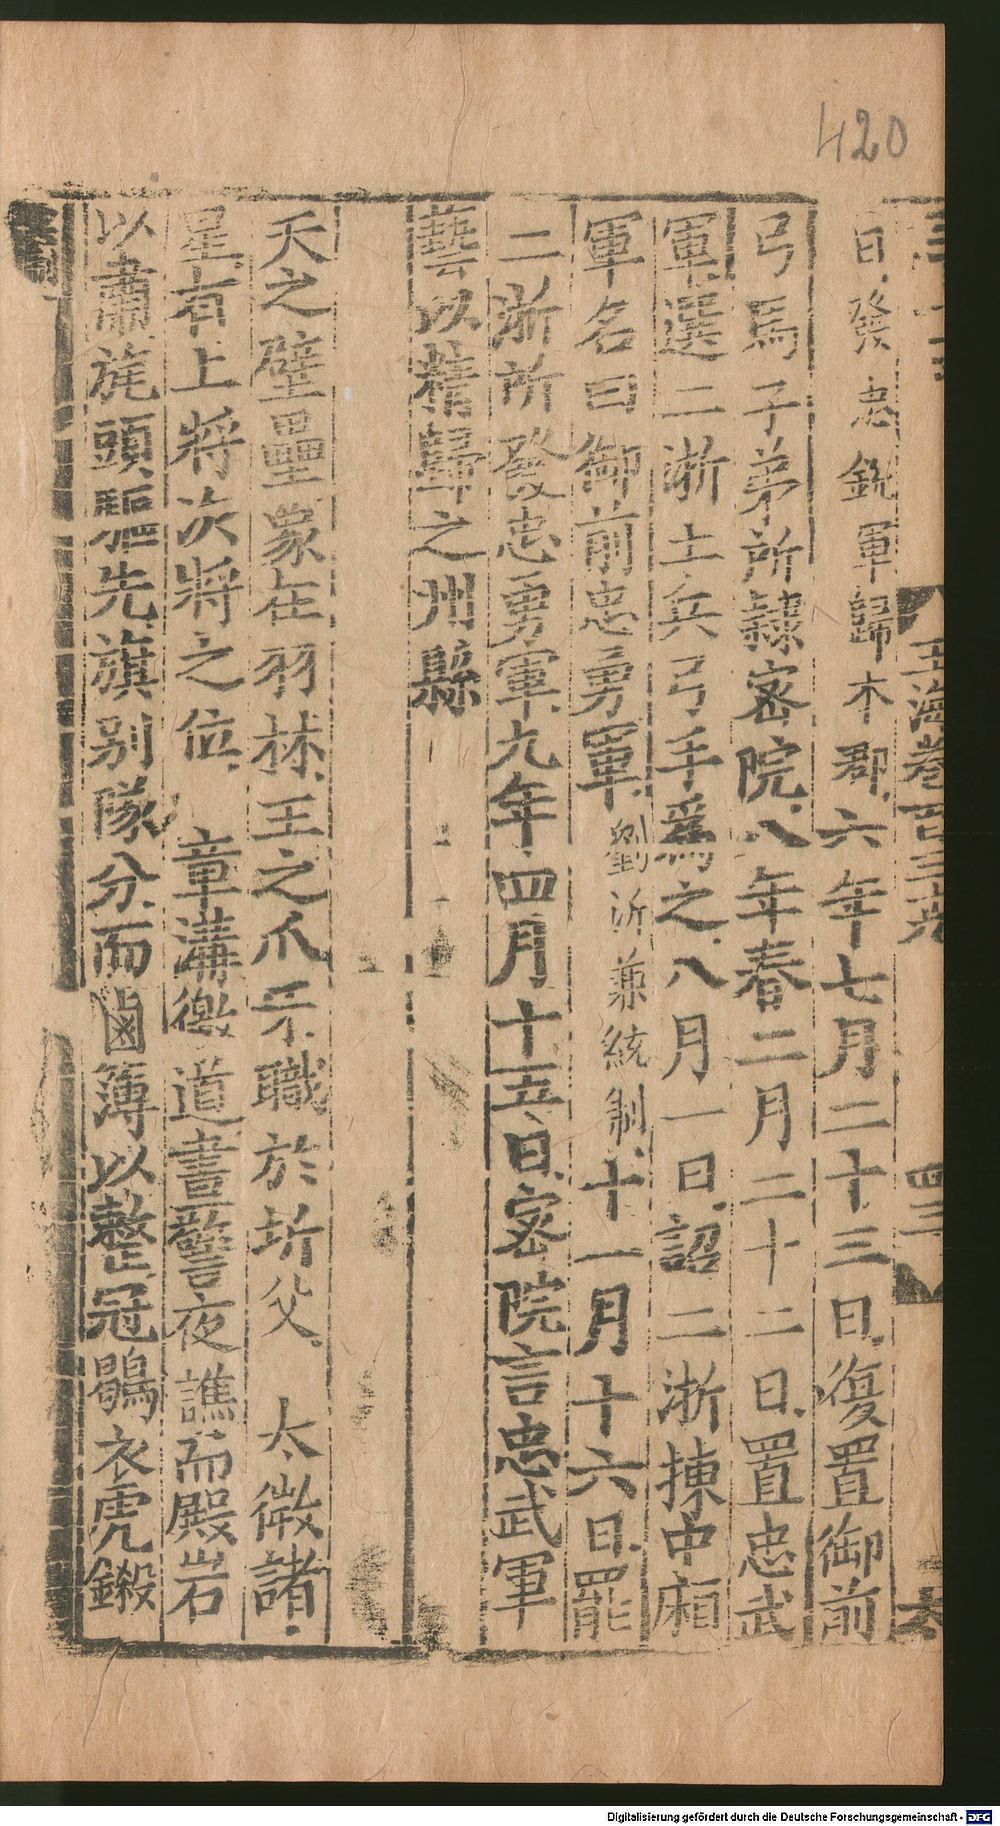 420
玉海卷百三九
四三
日發忠銳軍歸本郡六年七月二十三日復置御前
弓馬子弟所隷宻院八年春二月二十二日置忠武
軍選二浙土兵弓手爲之八月一日詔二浙揀中廂
軍名曰御前忠勇軍劉沂兼統制十一月十六日罷
二浙所發忠勇軍九年四月十五日宻院言忠武軍
藝以精歸之州縣
天之壁壘象在羽林王之爪牙職於圻父 太微諸
星有上將次將之位 章溝徼道晝警夜譙而殿岩
以肅旄頭驅先旗别隊分而鹵簿以整冠鶡衣虎鎩
Digitalisierung gefördert durch die Deutsche Forschungsgemeinschaft - DFG